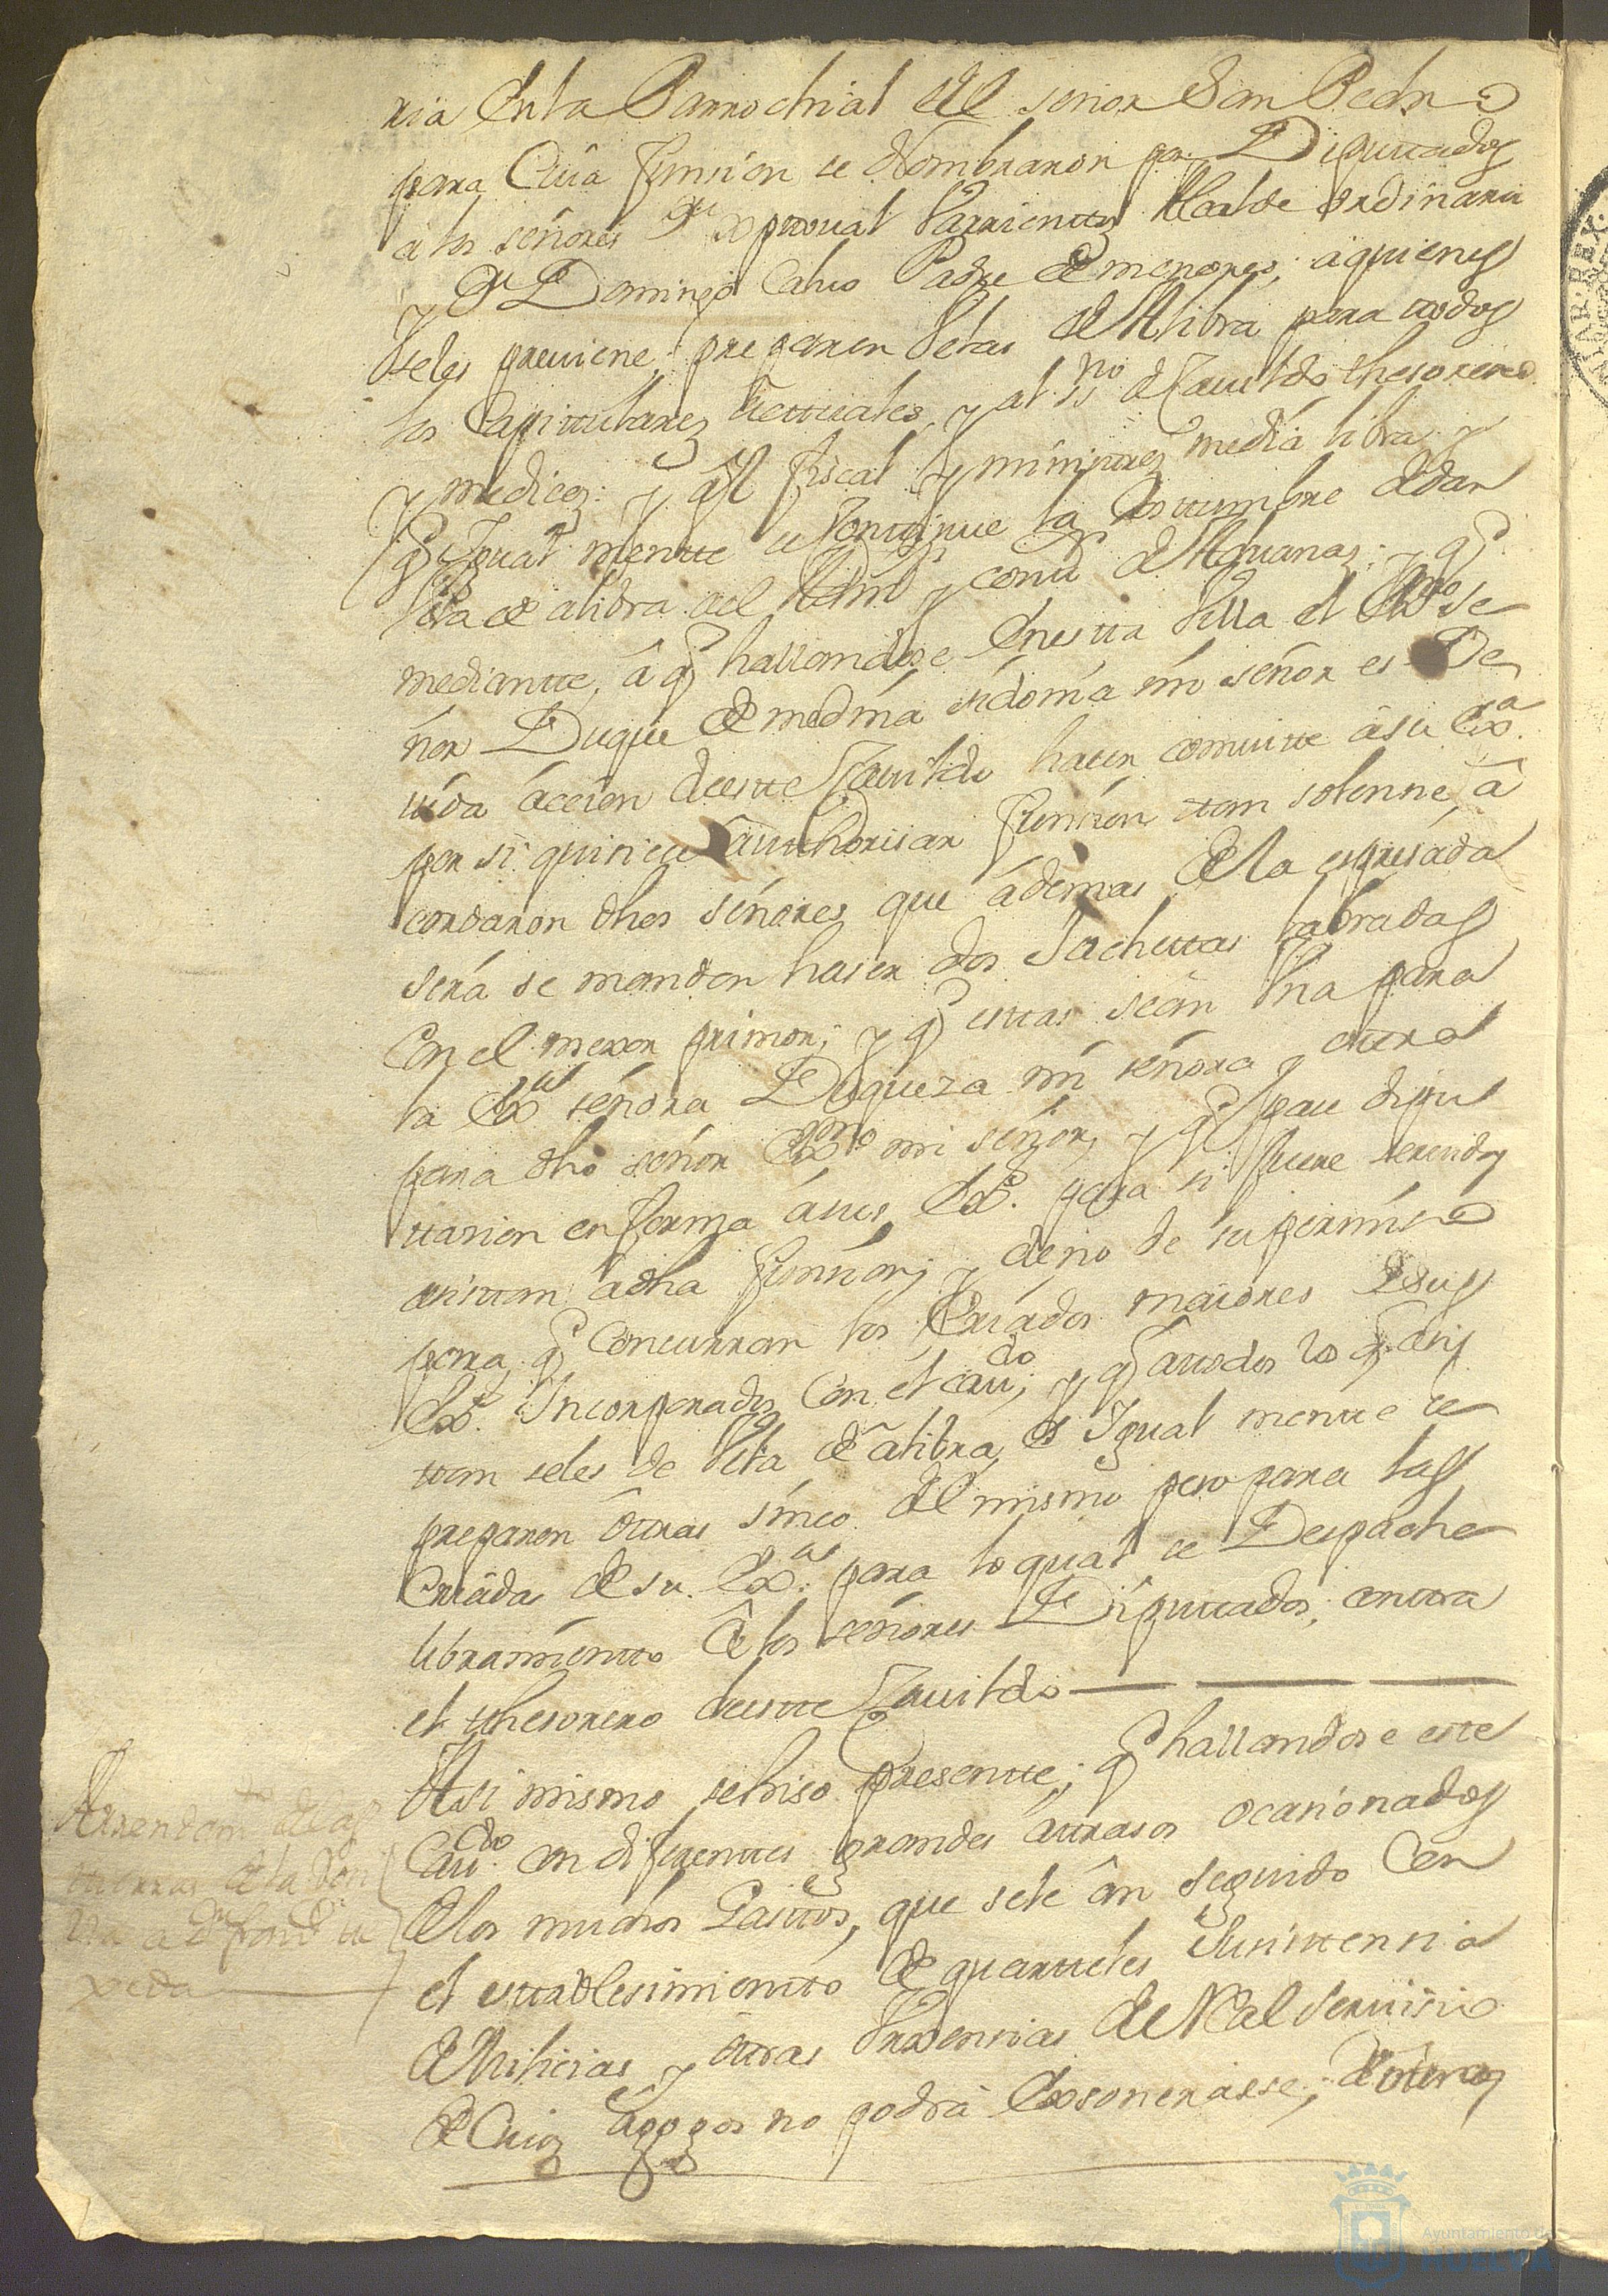 ria en la Parrochial del señor San Pedro
para Cuia funsion se Nombraron por Diputados
a los señores Dn Xptoual Barrientos Alcalde ordinario
y Dn Domingo Calvo Padre de menores, aquienes
seles previene, preparen Velas de Alibra para todos
los Capitulares actuales, y al ssno de Cavildo thesorero
y medicos: y al fiscal y ministros media libra, y
q Igual mente se continue la Costumbre de dar
Vela de alibra al Admor y contr de Aduanas; y q
mediantte, â q hallandose en esta Villa el Exmo Se
ñor Duque de medina sidonia mi señor es De
vida accion de este Cavildo hacer convite â su Exa
por si quisiese authorisar funsion tan solenne, a
cordaron dhos señores que ademas de la espresada
sera se manden haser dos Jachetas labradas
Con el mexor primor; y q estas sean Vna para
la Exma señora Duqueza mi señora y otra
para dho señor Exmo mi señor, y q pase dipu
tasion en forma a sus Exs. para si fuere servido
asistan âdha funsion; y de no de su permiso
para q Concurran los Criados maiores de sus
Exs. Incorporados Con el cavdo; y q â todos los q asis
tan seles de Vela de alibra, e Igual mente se
preparen otras sinco del mismo peso para las
Criadas de su Exas. para lo qual se Despache
libramiento â los señores Diputados, contra
el thesorero deeste Cavildo
Asi mismo sehiso presente; q hallandose este
Cavdo con diferentes grandes atrasos ocasionados
de los muchos Gastos, que sele ân seguido Con
el establesimiento de quarteles susistensia
de Milicias, y otras Vrxensias del Real servisio
de Cuios apogos no podra exsonerasse,
Arrendamto de las
tierras de la
a Dn
xeda
AR. REX.
Ayuntamiento de
HUELVA